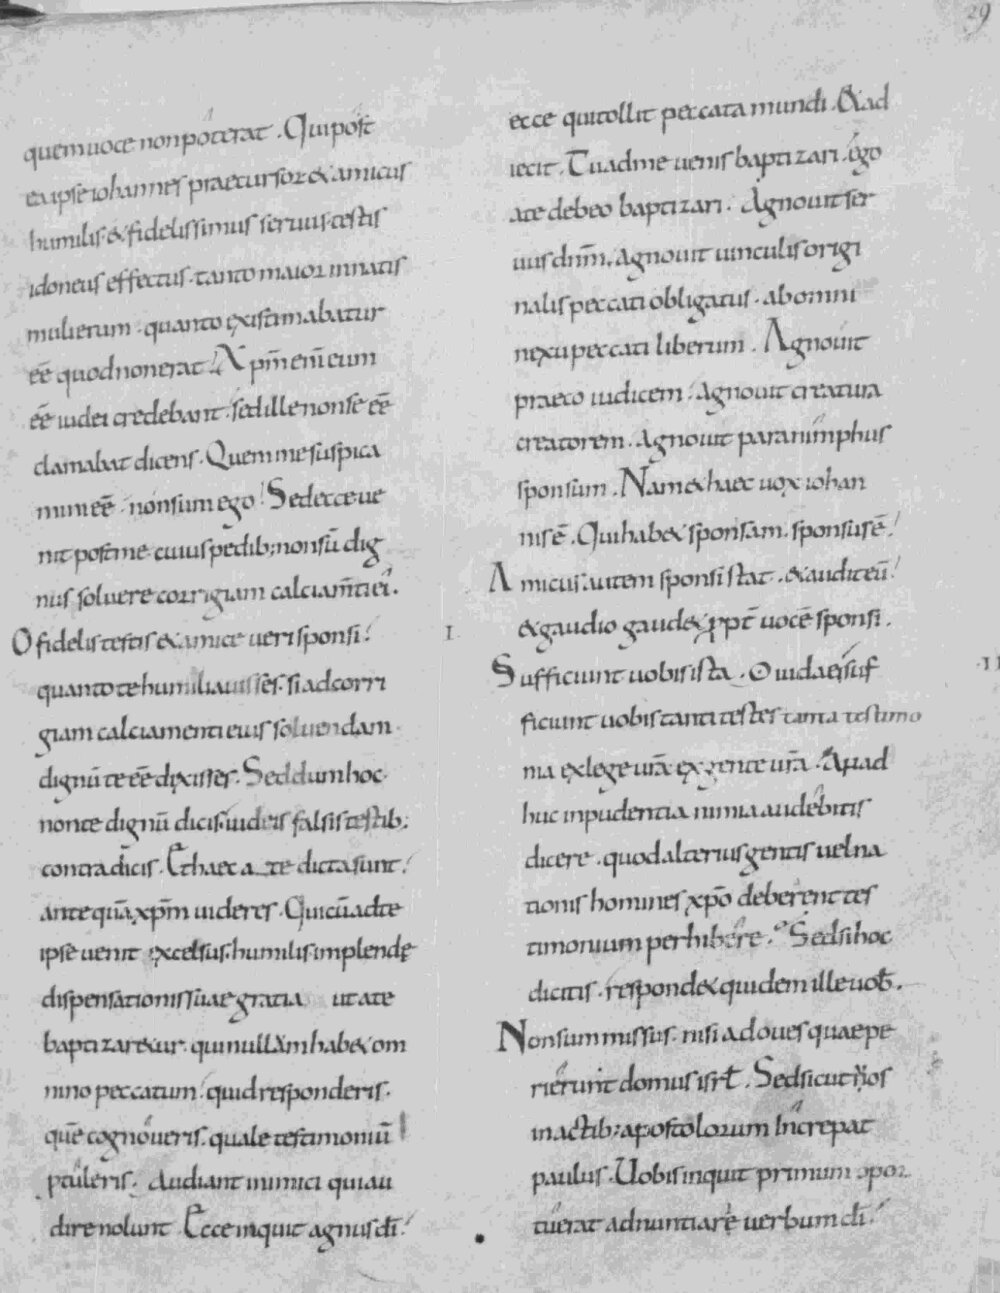 29
quem uoce non poterat . Qui post
ea ipse iohannes praecursor & amicus
humilis · & fidelissimus seruus · testis
idoneus effectus · tanto maior in natis
mulierum · quanto existimabatur
eē quod non erat ! Xp̄m enī eum
eē iudei credebant · sed ille non se eē
clamabat dicens . Quem me suspica
mini eē · non sum ego ! Sed ecce ue
nit post me cuius pedib; non sū dig
nus soluere corrigiam calciam̄ti ei' .
O fidelis testis & amice ueri sponsi !
quanto te humiliauisses · si ad corri
giam calciamenti eius soluendam ·
dignū te eē dixisses . Sed dum hoc ·
non te dignū dicis · iudeis falsis testib;
contradicis . Et haec a te dicta sunt !
ante quā xp̄m uideres . Qui cū ad te
ipse uenit excelsus · humilis · implendę
dispensationis suae gratia ut a te
baptizaretur · qui nullam habet om
nino peccatum · quid responderis ·
quē cognoueris · quale testimoniū
ptuleris · Audiant inimici qui au
dire nolunt . Ecce inquit agnus dī !
ecce qui tollit peccata mundi . & ad
iecit . Tu ad me uenis baptizari · ego
a te debeo baptizari . Agnouit ser
uus dn̄m . agnouit uinculis origi
nalis peccati obligatus · ab omni
nexu peccati liberum . Agnouit
praeco iudicem · agnouit creatura
creatorem . agnouit paranimphus
sponsum . Nam & haec uox iohan
nis ē . Qui hab& sponsam · sponsus ē !
Amicus autem sponsi stat · & audit eū !
& gaudio gaud& ppt̄ uocē sponsi .
Sufficiunt uobis ista . O iudaei suf
ficiunt uobis tanti testes tanta testimo
nia ex lege ur̄a ex gente ur̄a . An ad
huc inpudentia nimia audebitis
dicere · quod alterius gentis uel na
tionis homines xp̄o deberent tes
timonium perhibere . Sed si hoc
dicitis · respond& quidem ille uob̄ .
Non sum missus · nisi ad oues quae pe
rierunt domus isrł . Sed sicut uos
in actib; apostolorum increpat
paulus . Uobis inquit primum opor
tuerat adnuntiare uerbum dī !
I
·II